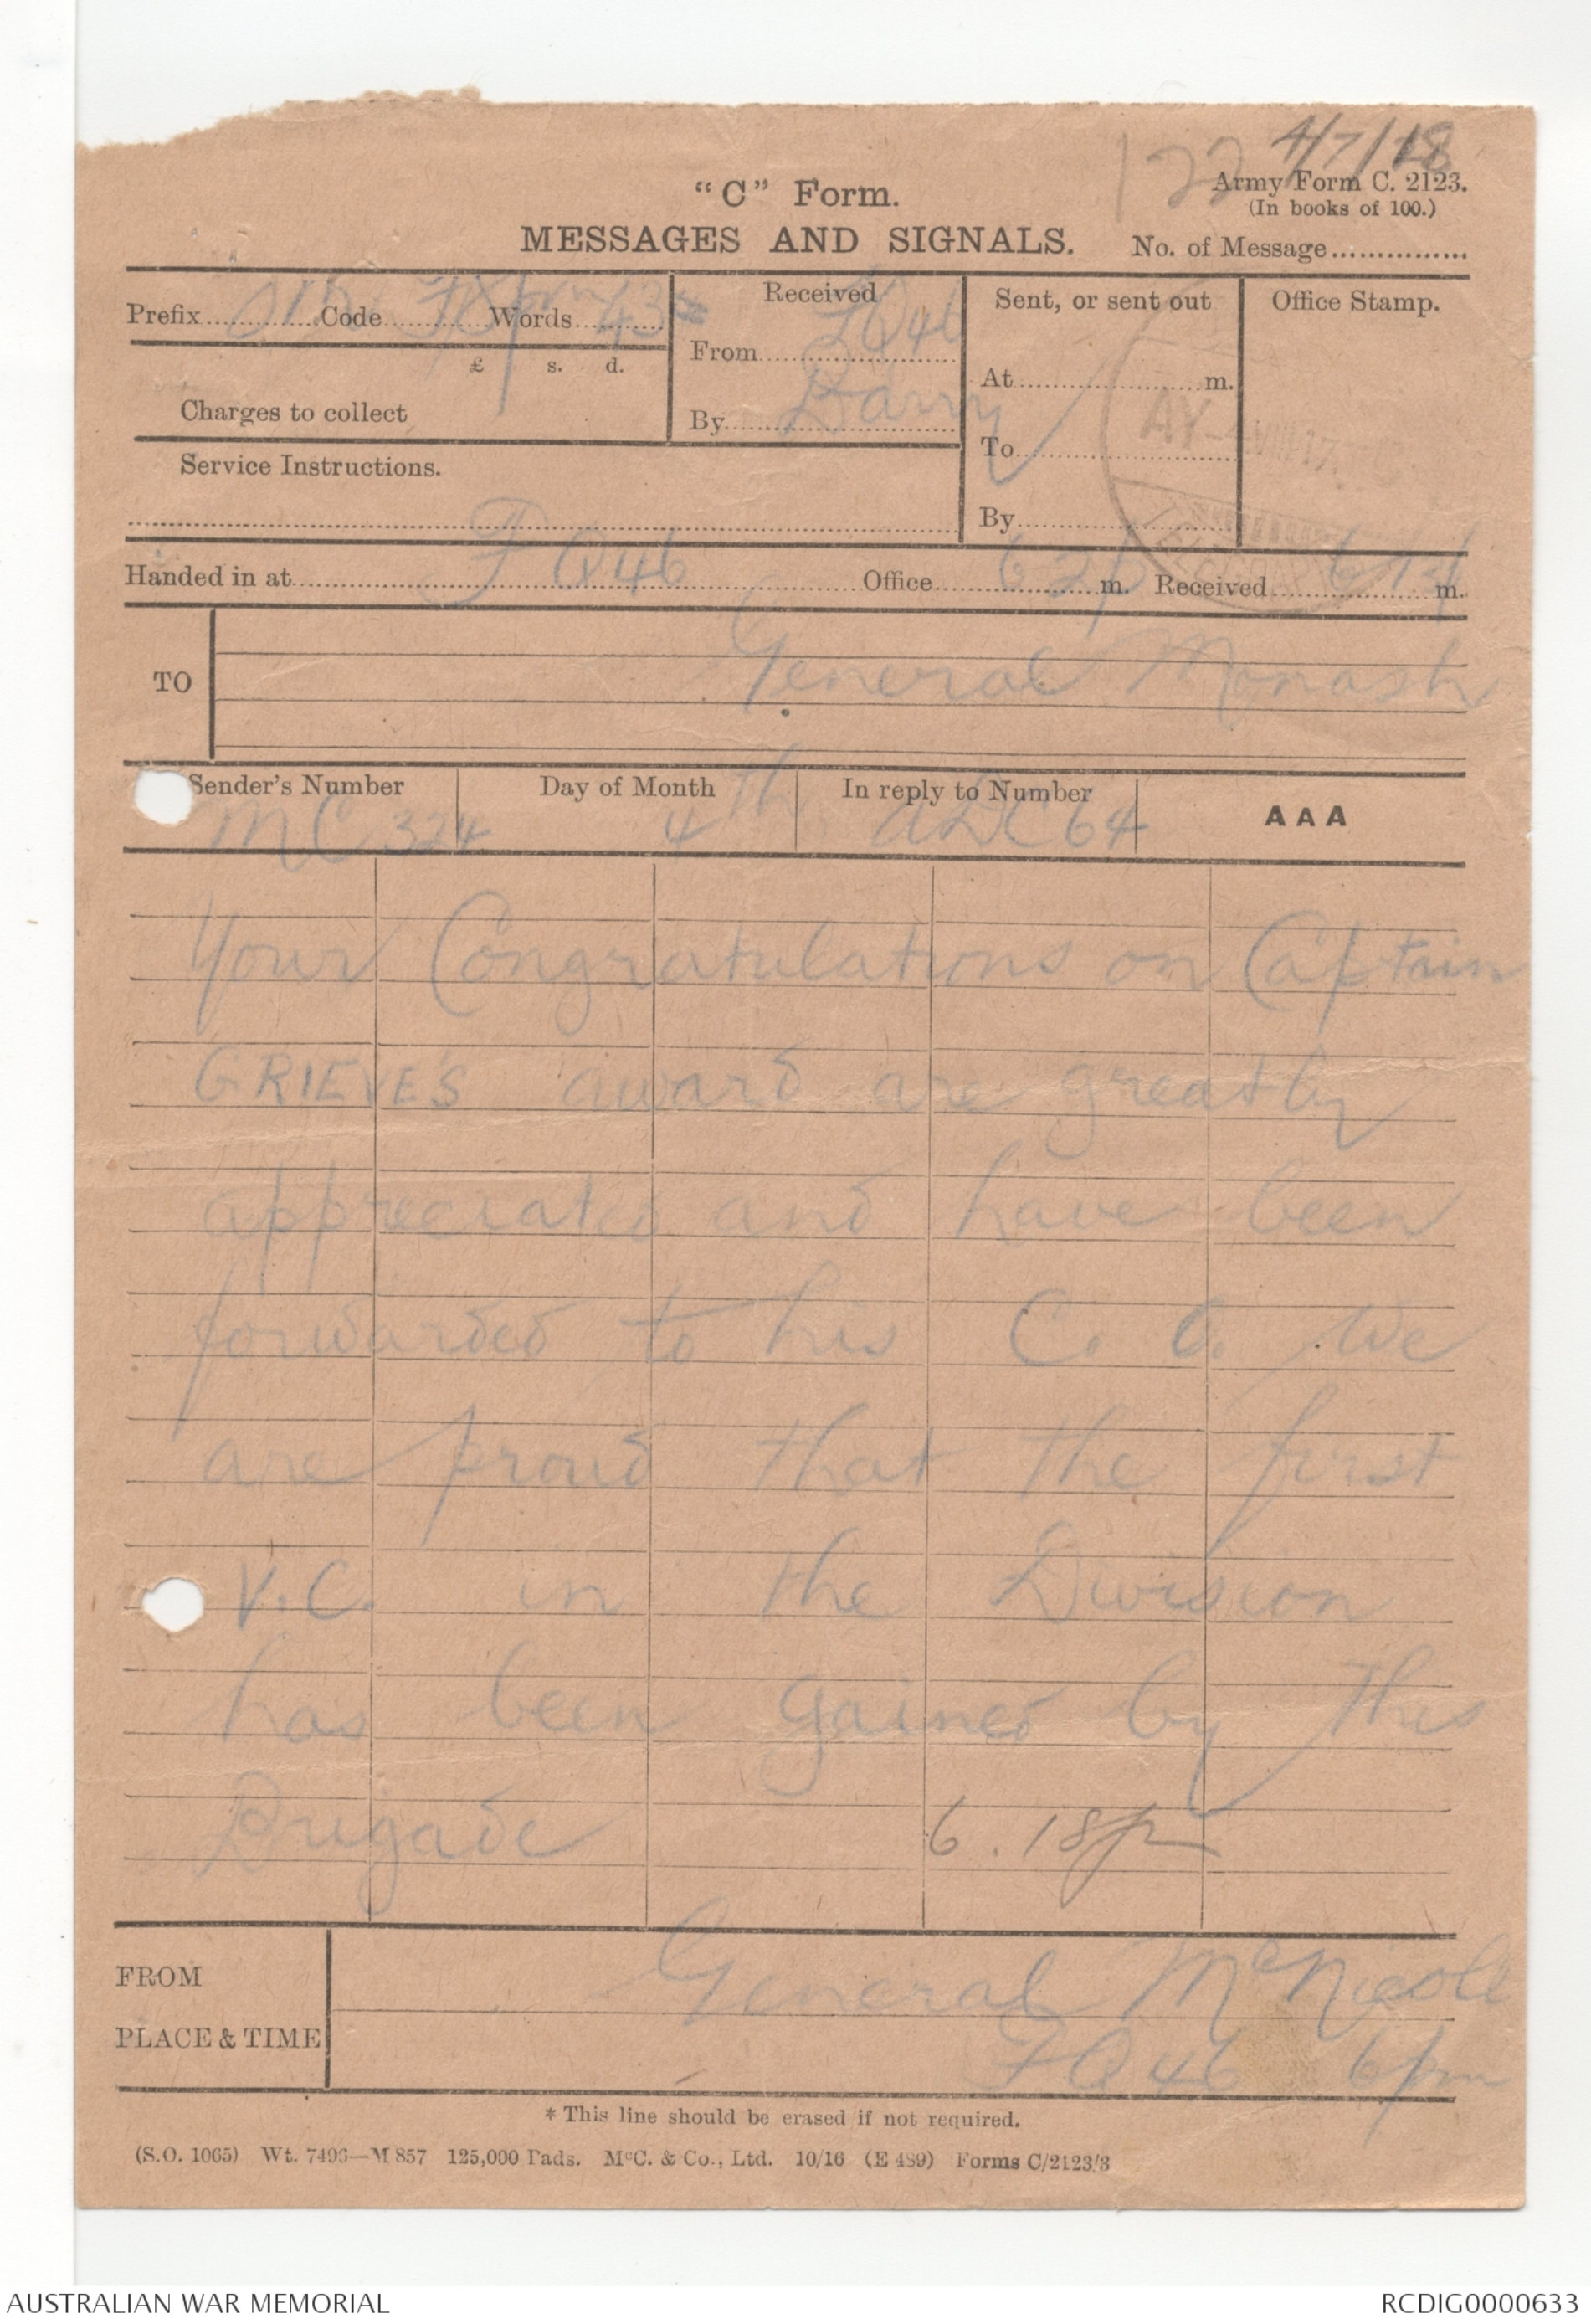 122 4/7/18
"C" Form.
Army Form C. 2123.
(In books of 100.)
MESSAGES AND SIGNALS.
No. of Message
Prefix Code Words 43
£ s. d.
Charges to collect
Service Instructions.
Received
From
By Barry
Sent, or sent out
At m.
To
By
Office Stamp.
Handed in at FQ46 Office m. Received m.
TO General Monash
Sender's Number Day of Month In reply to Number AAA
MC 324 4th ADC 64
Your Congratulations on Captain
GRIEVES award are greatly
appreciated and have been
forwarded to his C. O. We
are proud that the first
V.C. in the Division
has been gained by this
Brigade 6.18pm
FROM General McNicoll
PLACE & TIME FQ46 6pm
* This line should be erased if not required.
(S.O. 1065) Wt. 7496—M 857 125,000 Pads. McC. & Co., Ltd. 10/16 (E 489) Forms C/2123/3
AUSTRALIAN WAR MEMORIAL
RCDIG0000633